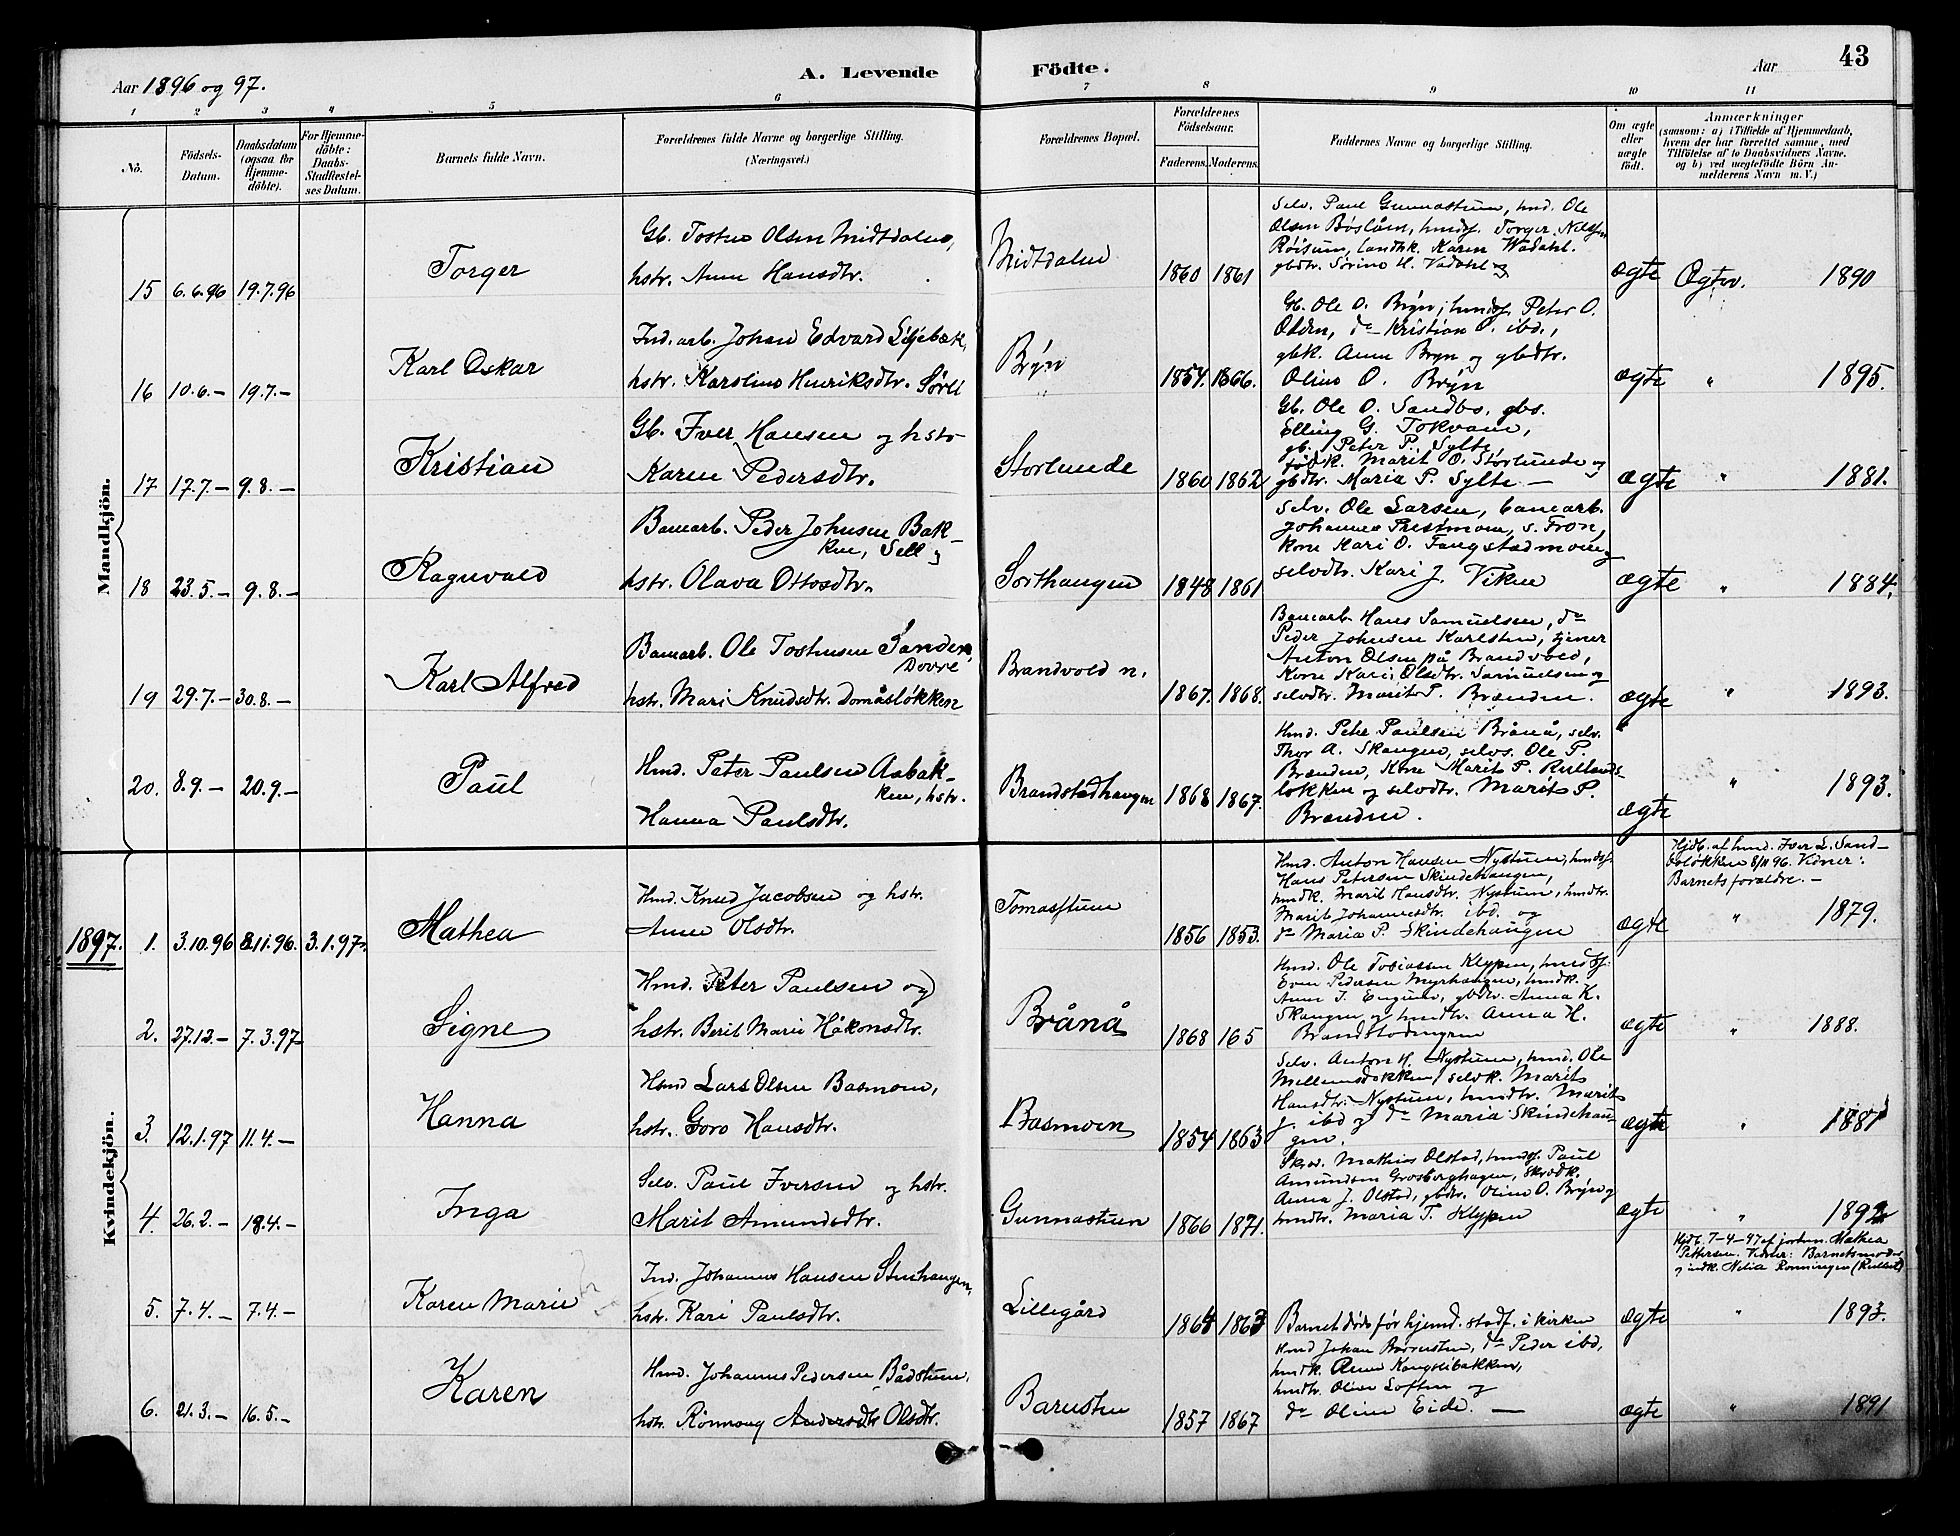 43
Aar 1896 og 97.
A. Levende Födte.
Aar
1 2 3 4 5 6 7 8 9 10 11
No.
Födsels-Datum.
Daabsdatum (ogsaa for Hjemme-döbte).
For Hjemme-döbte: Daabs-Stadfæstel-ses Datum.
Barnets fulde Navn.
Forældrenes fulde Navne og borgerlige Stilling.
(Næringsvei.)
Forældrenes Bopæl.
Forældrenes Födselsaar.
Faderens. Moderens.
Faddernes Navne og borgerlige Stilling.
Om ægte eller uægte födt.
Anmærkninger
(saasom: a) i Tilfælde af Hjemmedaab,
hvem der har forrettet samme, med
Tilföielse af to Daabsvidners Navne.
og b) ved uægtefödte Börn An-
melderens Navn m. V.)
Mandkjön.
15 6.6.96 19.7.96
Torger
Gb. Tosten Olsen Midtdalen,
hstr. Anne Hansdtr.
Midtdalen
1860 1861
Selv. Paul Gunnastuen, hmd. Ole
Olsen Böslåen, hmdsf. Torger Nilsen
Röisum, landhk. Karen Wadahl.
gbdtr. Sörine H. Vadahl
ægte
Ægtev. 1890
16 10.6.- 19.7.-
Karl Oskar
Ind. arb. Johan Edvard
hstr. Karoline Henriksdtr. Sörli
Brÿn
1854. 1866.
Gb. Ole O. Brÿn, hmdsf. Peter O.
do Kristian O. ibd.,
gbk. Anne Bryn og gbdtr.
Oline O. Brÿn
ægte
" 1895.
17 17.7.- 9.8.-
Kristian
Gb. Iver Hansen og hstr
Karen Pedersdtr.
Storlunde
1860 1862
Gb. Ole O. Sandbo, gbs.
Elling G. Tokvam,
gb. Peter P. Sylte
födk. Marit O. Storlunde og
gbdtr. Maria P. Sylte -
ægte
" 1881.
18 23.5.- 9.8.-
Ragnvald
Banearb. Peder Johnsen Bak-
ken, Sell og
hstr. Olava Ottosdtr.
Sorthaugen
1848 1861
Selv. Ole Larsen, banearb.
Johannes Prestmoen, S. Fron,
kone Kari O. Tangstadmoen og
selvdtr. Kari J. Viken
ægte
" 1884.
19 29.7.- 30.8.-
Karl Alfred
Banearb. Ole Tostensen Sanden,
Dovre
hstr. Mari Knudsdtr. Domåsløkken
Brandvold n.
1867. 1868.
Banearb. Hans Samuelsen, do
Peder Johnsen Karlsten, tjener
Anton Olsen på Brandvold,
Kone Kari Olsdtr. Samuelsen og
selvdtr. Marit P. Brænden.
ægte
" 1893.
20. 8.9.- 20.9.-
Paul
Hmd. Peter Paulsen Aabak-
ken, hstr.
Hanna Paulsdtr.
Brandstadhaugen
1868 1867.
Hmd. Peter Paulsen Brånå, selv.
Thor A. Skaugen, selvs. Ole P.
Brænden, Kone Marit P. Rullands-
løkken og selvdtr. Marit P.
Brænden.
ægte
" 1893.
Kvindekjön.
1897.
1. 3.10.96 8.11.96. 3.1.97.
Mathea
Hmd. Knud Jacobsen og hstr.
Anne Olsdtr.
Tomasstuen
1856 1853.
Hmd. Anton Hansen Nystuen, hmdsf.
Hans Petersen Skindehaugen,
hmdk. Marit Hansdtr. Nystuen, hmdtr.
Marit Johannesdtr. ibd. og
do Maria P. Skindehaugen
ægte
Hjdb. af hmd. Iver L. Sand-
boløkken 8/11 96. Vidner:
Barnets forældre. -
" 1879.
2. 27.12.- 7.3.97
Signe
Hmd. Peter Paulsen og
hstr. Berit Marie Håkonsdtr.
Brånå
1868 165
Hmd. Ole Tobiassen Klypen, hmdsf.
Even Pedersen Myrhaugen, hmdk.
Anne I. Engum, gbdtr. Anna K.
Skaugen og hmdtr. Anna H.
Brandstadengen
ægte
" 1888.
3. 12.1.97 11.4.-
Hanna
Hmd Lars Olsen Basmoen,
hstr. Goro Hansdtr.
Basmoen
1854 1863
Selv. Anton H. Nystuen, hmd. Ole
Mellemsløkken, selvk. Marit
Hansdtr. Nystuen, hmdtr. Marit
J. ibd og do Maria Skindehau-
gen.
ægte
" 1881
4. 26.2.- 18.4.-
Inga
Selv. Paul Iversen og hstr.
Marit Amundsdtr.
Gunnastuen
1866 1871.
Skræd. Mathias Olstad, hmdsf. Paul
Amundsen Grosberghagen, skrædk.
Anna J. Olstad, gbdtr. Oline O. Brÿn og
hmdtr. Maria T. Klypen
ægte
" 1892
5. 7.4.- 7.4.-
Karen Marie
Ind. Johannes Hansen Stuehaugen,
hstr. Kari Paulsdtr.
Lillegård
1864 1863
Barnet døde før hjemd. stadf. i kirken
ægte
Hjdb. 7-4-97 af jordm. Mathea
Pettersen. Vidner: Barnets moder
og indk. Nilia Rønningen
" 1893.
6. 21.3.- 16.5.-
Karen
Hmd. Johannes Pedersen Bådstuen,
hstr. Rönnaug Andersdtr Olsdtr.
Barusten
1857 1867
Hmd Johan Barusten, do Peder ibd,
hmdk. Anne Kongslibakken,
hmdtr. Oline Loften og
do Oline Eide. -
ægte
" 1891